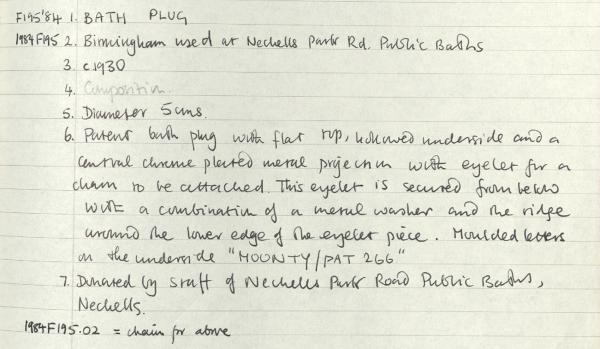 F195'84 1. BATH PLUG
1984F195 2. Birmingham used at Nechells Park Rd. Public Baths
3. c1930
4. Composition.
5. Diameter 5cms.
6. Patent bath plug with flat top, hollowed underside and a
central chrome plated metal projection with eyelet for a
chain to be attached. This eyelet is secured from below
with a combination of a metal washer and the ridge
around the lower edge of the eyelet piece. Moulded letters
on the underside "MOONTY/PAT 266"
7. Donated by staff of Nechells Park Road Public Baths,
Nechells.
1984F195.02 = chain for above